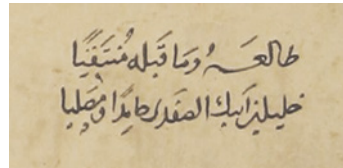 طالعه وما قبله منتقيًا
خليل بن ايبك الصفدي حامدًا ومصليا